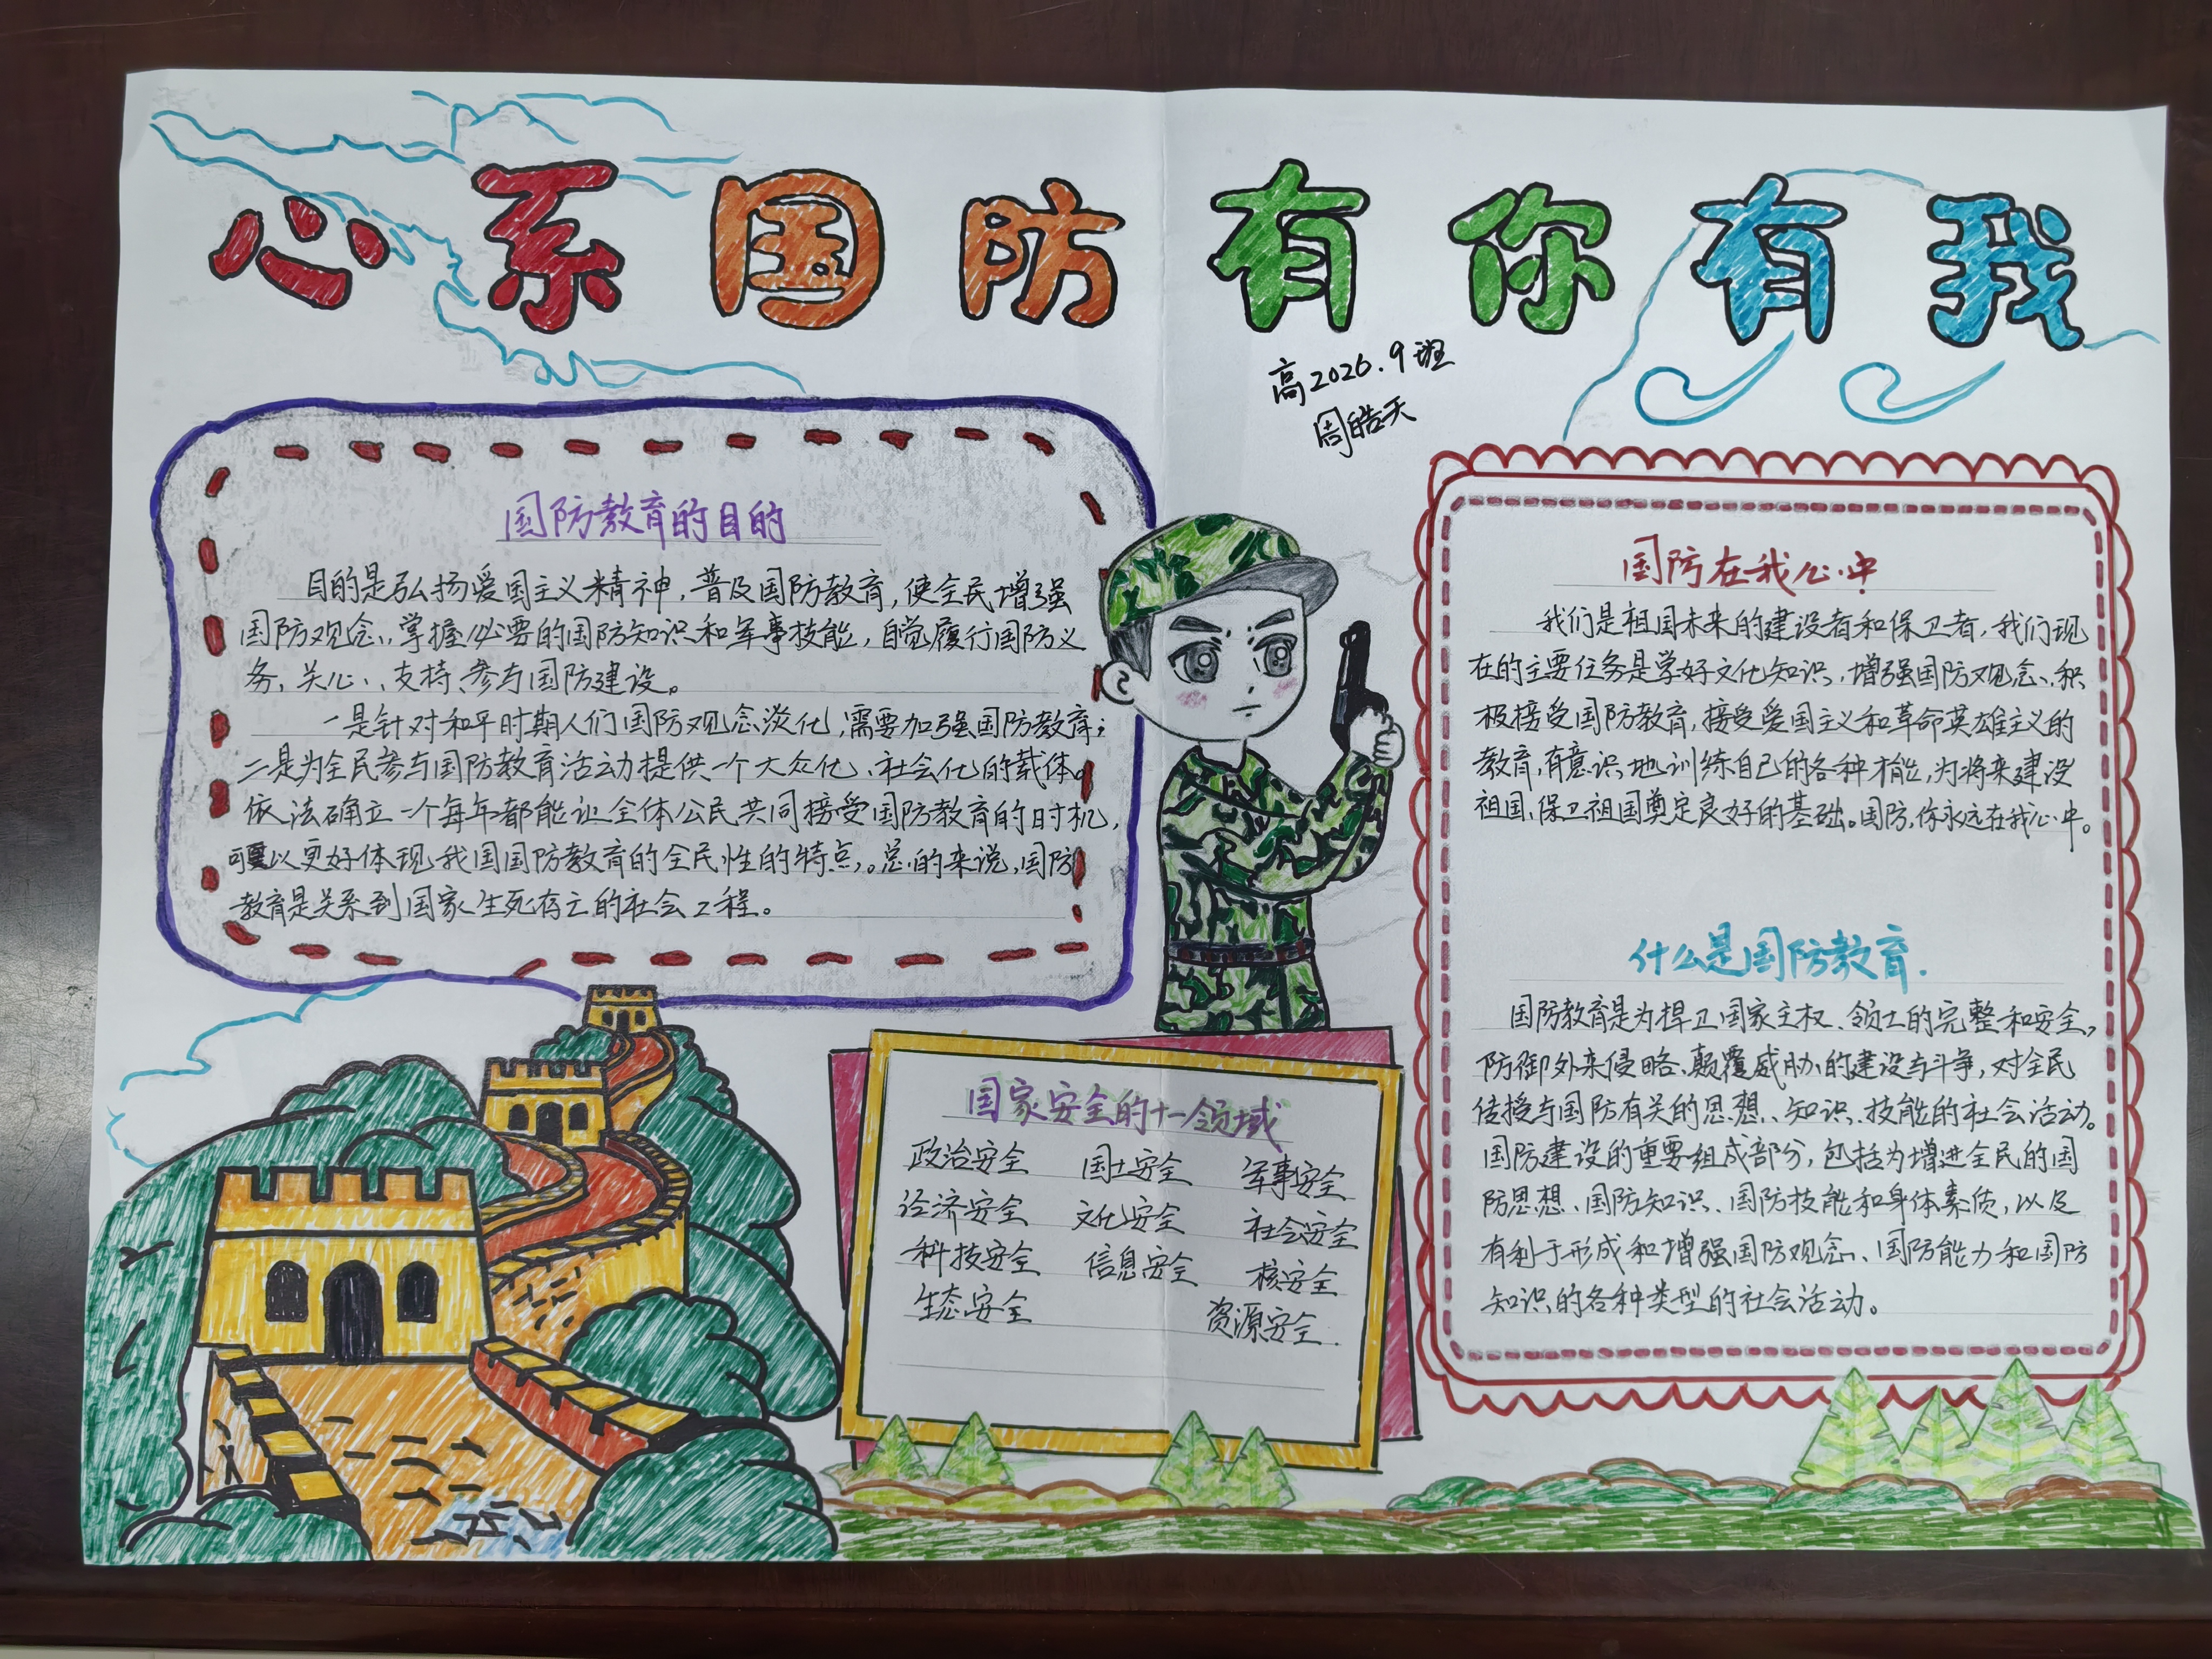 心系国防有你有我
高2026.9班
周皓天
国防教育的目的
目的是弘扬爱国主义精神，普及国防教育，使全民增强
国防观念、掌握必要的国防知识和军事技能，自觉履行国防义
务，关心、支持、参与国防建设。
一是针对和平时期人们国防观念淡化，需要加强国防教育；
二是为全民参与国防教育活动提供一个大众化、社会化的载体。
依法确立一个每年都能让全体公民共同接受国防教育的时机，
可以更好体现我国国防教育的全民性的特点，。总的来说，国防
教育是关系到国家生死存亡的社会工程。
国防在我心中
我们是祖国未来的建设者和保卫者，我们现
在的主要任务是学好文化知识，增强国防观念、积
极接受国防教育，接受爱国主义和革命英雄主义的
教育，有意识地训练自己的各种才能，为将来建设
祖国，保卫祖国奠定良好的基础。国防，你永远在我心中。
什么是国防教育.
国防教育是为捍卫国家主权、领土的完整和安全，
防御外来侵略、颠覆威胁的建设与斗争，对全民
传授与国防有关的思想、知识、技能的社会活动。
国防建设的重要组成部分，包括为增进全民的国
防思想、国防知识、国防技能和身体素质，以及
有利于形成和增强国防观念、国防能力和国防
知识的各种类型的社会活动。
国家安全的十一领域
政治安全 国土安全 军事安全
经济安全 文化安全 社会安全
科技安全 信息安全 核安全
生态安全 资源安全.